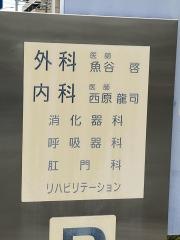 外科 医師 魚谷 啓
内科 医師 西原 龍司
消化器科
呼吸器科
肛門科
リハビリテーション
P